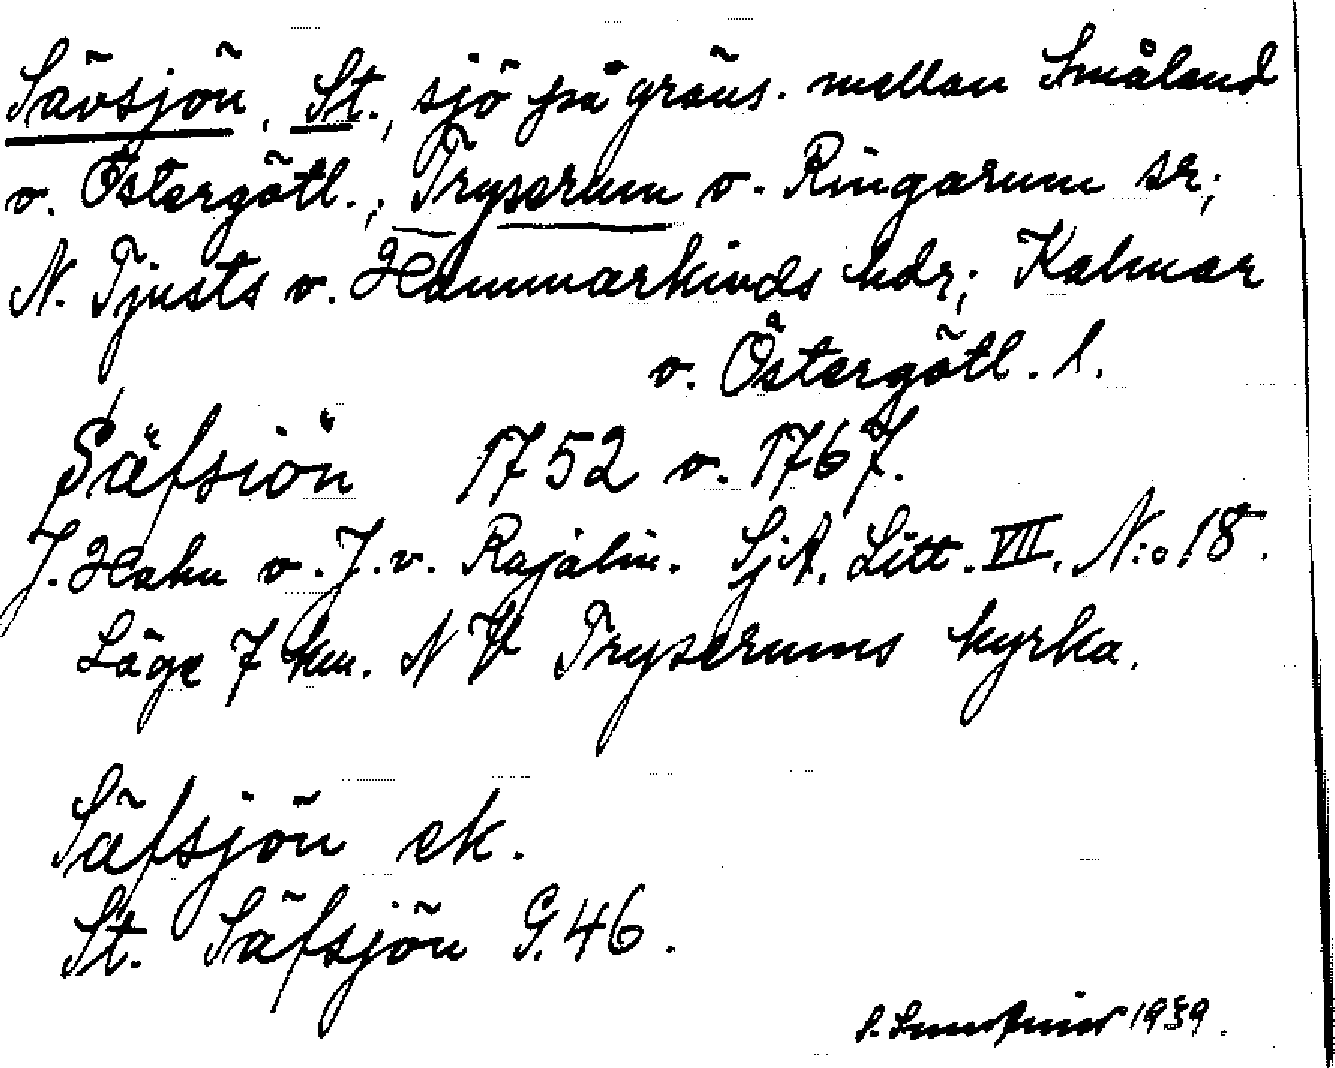 Sävsjön, St., sjö på gräns. mellan Småland
o. Östergötl.; Tryserum o. Ringarum sr;
N. Tjusts o. Hammarkinds hdr; Kalmar
o. Östergötl. l.
Säfsiön 1752 o. 1767.
J. Hahn o. J. v. Rajalin. SjA. Litt. VII. N:o 18.
Läge 7 km. NV Tryserums kyrka.
Säfsjön ek.
St. Säfsjön G. 46.
S. 1939.